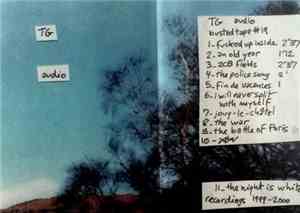 TG
audio
TG audio
busted tape #19
1 - fucked up inside 2'37
2 - an old year 1'12
3 - 208 fields 2'37
4 - the police song
5 - fin de vacances 1'
6 - i will never split
with myself
7 - jouy-le-châtel
8 - the war
9 - the battle of Paris
10 -
11 - the night is white
recordings 1999-2000